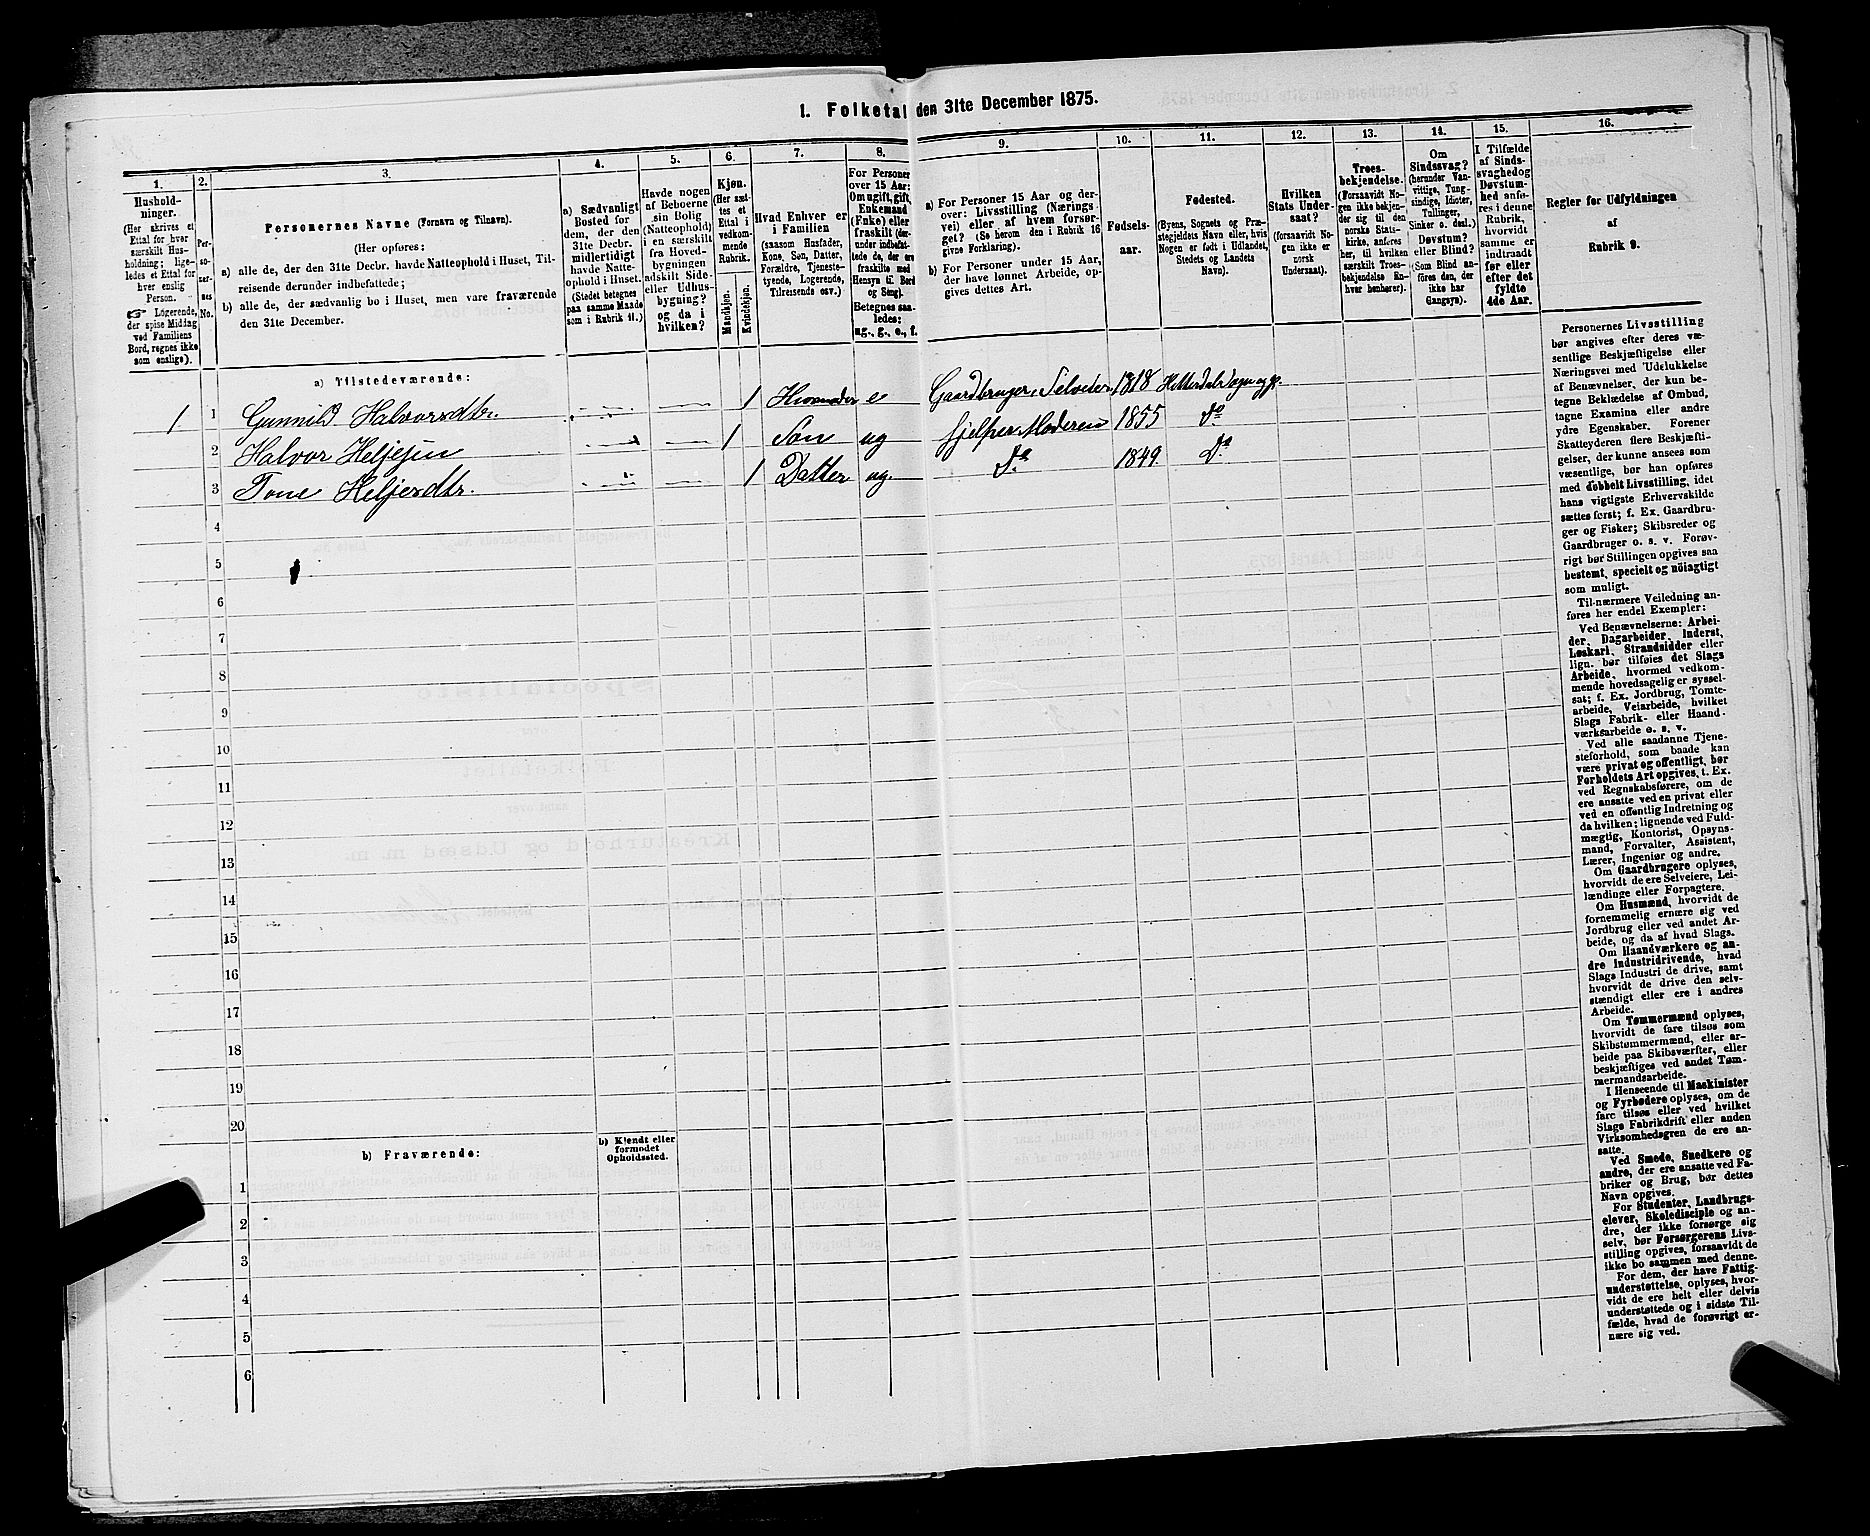 1. Folketal den 31te December 1875.
1.
Hushold-
ninger.
(Her skrives et
Ettal for hver
særskilt Hus-
holdning; lige-
ledes et Ettal for
hver enslig
Person.
☞ Logerende,
der spise Middag
ved Familiens
Bord, regnes ikke
som enslige).
2.
Per-
so-
ner-
nes
No.
3.
Personernes Navne (Fornavn og Tilnavn).
(Her opføres:
a) alle de, der den 31te Decbr. havde Natteophold i Huset, Til-
reisende derunder indbefattede;
b) alle de, der sædvanlig bo i Huset, men vare fraværende
den 31te December.
4.
a) Sædvanligt
Bosted for
dem, der den
31te Decbr.
midlertidigt
havde Natte-
ophold i Huset.
(Stedet betegnes
paa samme Maade
som i Rubrik 11.)
5.
Havde nogen
af Beboerne
sin Bolig
(Natteophold)
i en særskilt
fra Hoved-
bygningen
adskilt Side-
eller Udhus-
bygning?
og da i
hvilken?
6.
Kjøn.
(Her sæt-
tes et
Ettal i
vedkom-
mende
Rubrik.
Mandkjøn.
Kvindekjøn.
7.
Hvad Enhver er
i Familien
(saasom Husfader,
Kone, Søn, Datter,
Forældre, Tjeneste-
tyende, Logerende,
Tilreisende osv.)
8.
For Personer
over 15 Aar:
Om ugift, gift,
Enkemand
(Enke) eller
fraskilt (der-
under indbefat-
tede de, der ere
fraskilte med
Hensyn til Bord
og Seng).
Betegnes saa-
ledes:
ug., g., e., f.
9.
a) For Personer 15 Aar og der-
over: Livsstilling (Nærings-
vei) eller af hvem forsør-
get? (Se herom den i Rubrik 16
givne Forklaring).
b) For Personer under 15 Aar,
der have lønnet Arbeide, op-
gives dettes Art.
10.
Fødsels-
aar.
11.
Fødested.
(Byens, Sognets og Præ-
stegjeldets Navn eller, hvis
Nogen er født i Udlandet,
Stedets og Landets
Navn).
12.
Hvilken
Stats Under-
saat?
(forsaavidt No-
gen ikke er
norsk
Undersaat).
13.
Troes-
bekjendelse.
(Forsaavidt No-
gen ikke bekjen-
der sig til den
norske Stats-
kirke, anføres
her, til hvilken
særskilt Troes-
bekjendelse En-
hver henhører).
14.
Om
Sindssvag?
(herunder Van-
vittige, Tung-
sindige, Idioter,
Tullinger,
Sinker o. desl.)
Døvstum?
eller Blind?
(Som Blind an-
føres den, der
ikke har
Gangsyn).
15.
I Tilfælde
af Sinds-
svaghed og
Døvstum-
hed anfø-
res i denne
Rubrik,
hvorvidt
samme er
indtraadt
før eller
efter det
fyldte
4de Aar.
16.
Regler for Udfyldningen
af
Rubrik 9.
a) Tilstedeværende:
1 1 Gunnild Halvorsdtr. 1 Husmoder e Gaardbruger, Selveier 1818 Hitterdals Sogn og P.
2 Halvor Heljesen 1 Søn ug hjelper Moderen 1855 Do
3 Tone Heljesdtr. 1 Datter ug. Do 1849 Do
4
5
6
7
8
9
10
11
12
13
14
15
16
17
18
19
20
b) Fraværende:
b) Kjendt eller
formodet
Opholdssted.
1
2
3
4
5
6
Personernes Livsstilling
bør angives efter deres væ-
sentlige Beskjæftigelse eller
Næringsvei med Udelukkelse
af Benævnelser, der kun be-
tegne Beklædelse af Ombud,
tagne Examina eller andre
ydre Egenskaber. Forener
Skatteyderen flere Beskjæfti-
gelser, der kunne ansees som
væsentlige, bør han opføres
med dobbelt Livsstilling, idet
hans vigtigste Erhvervskilde
sættes først; f. Ex. Gaardbru-
ger og Fisker; Skibsreder og
Gaardbruger o. s. v. Forøv-
rigt bør Stillingen opgives saa
bestemt, specielt og nöiagtigt
som muligt.
Til nærmere Veiledning an-
føres her endel Exempler:
Ved Benævnelserne: Arbei-
der, Dagarbeider, Inderst,
Løskarl, Strandsidder eller
lign. bør tilføies det Slags
Arbeide, hvormed vedkom-
mende hovedsagelig er syssel-
sat; f. Ex. Jordbrug, Tomte-
arbeide, Veiarbeide, hvilket
Slags Fabrik- eller Haand-
værksarbeide o. s. v.
Ved alle saadanne Tjene-
steforhold, som baade kan
være privat og offentligt, bør
Forholdets Art opgives, t. Ex.
ved Regnskabsførere, om de
ere ansatte ved en privat eller
ved en offentlig Indretning og
da hvilken; lignende ved Fuld-
mægtig, Kontorist, Opsyns-
mand, Forvalter, Assistent,
Lærer, Ingeniør og andre.
Om Gaardbrugere oplyses,
hvorvidt de ere Selveiere, Lei-
lændinge eller Forpagtere.
Om Husmænd, hvorvidt de
fornemmelig ernære sig ved
Jordbrug eller ved andet Ar-
beide, og da af hvad Slags.
Om Haandværkere og an-
dre Industridrivende, hvad
Slags Industri de drive, samt
hvorvidt de drive den selv-
stændigt eller ere i andres
Arbeide.
Om Tømmermænd oplyses,
hvorvidt de fare tilsøs som
Skibstømmermænd, eller ar-
beide paa Skibsværfter, eller
beskjæftiges ved andet Tøm-
mermandsarbeide.
I Henseende til Maskinister
og Fyrbødere oplyses, om de
fare tilsøs eller ved hvilket
Slags Fabrikdrift eller anden
Virksomhedsgren de ere an-
satte.
Ved Smede, Snedkere og
andre, der ere ansatte ved Fa-
briker og Brug, bør dettes
Navn opgives.
For Studenter, Landbrugs-
elever, Skoledisciple og an-
dre, der ikke forsørge sig
selv, bør Forsørgerens Livs-
stilling opgives, forsaavidt de
ikke bo sammen med denne.
For dem, der have Fattig-
understøttelse, oplyses, hvor-
vidt de ere helt eller delvis
understøttede og i sidste Til-
fælde, hvad de forøvrigt er-
nære sig ved.